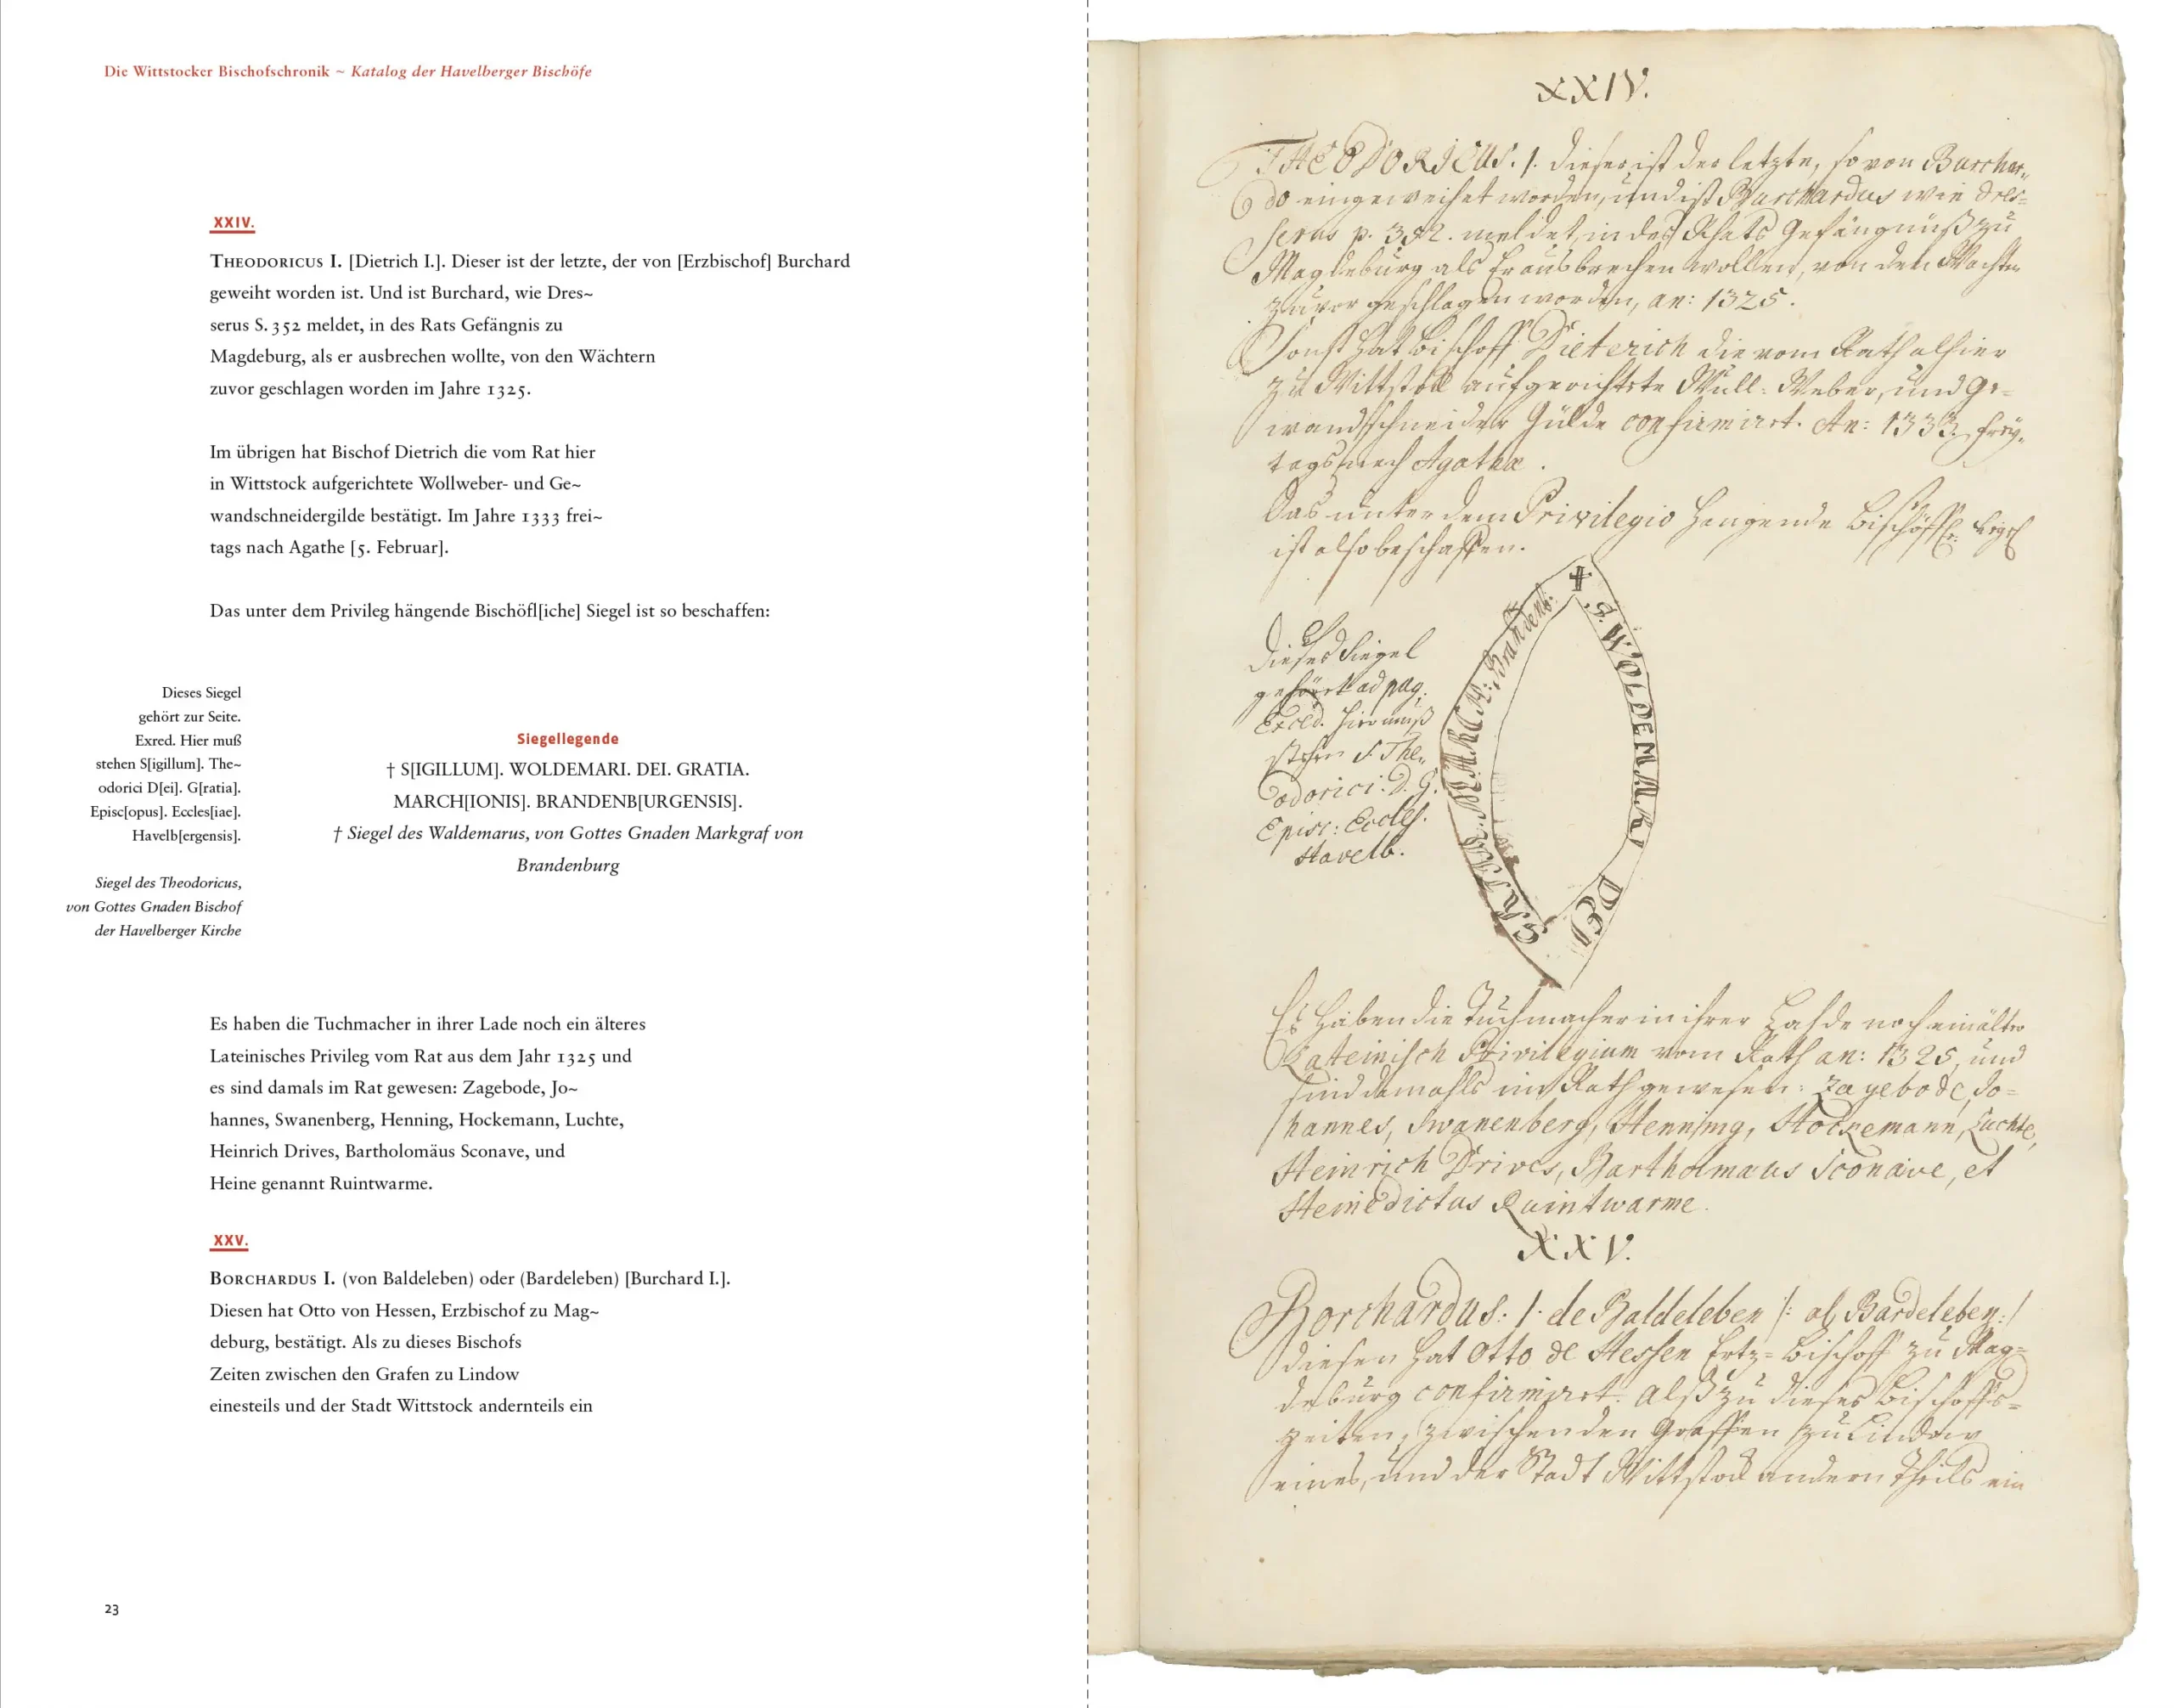 Die Wittstocker Bischofschronik ~ Katalog der Havelberger Bischöfe
XXIV.
THEODORICUS I. [Dietrich I.]. Dieser ist der letzte, der von [Erzbischof] Burchard
geweiht worden ist. Und ist Burchard, wie Dres~
serus S. 352 meldet, in des Rats Gefängnis zu
Magdeburg, als er ausbrechen wollte, von den Wächtern
zuvor geschlagen worden im Jahre 1325.
Im übrigen hat Bischof Dietrich die vom Rat hier
in Wittstock aufgerichtete Wollweber- und Ge~
wandschneidergilde bestätigt. Im Jahre 1333 frei~
tags nach Agathe [5. Februar].
Das unter dem Privileg hängende Bischöfl[iche] Siegel ist so beschaffen:
Dieses Siegel
gehört zur Seite.
Exred. Hier muß
stehen S[igillum]. The~
odorici D[ei]. G[ratia].
Episc[opus]. Eccles[iae].
Havelb[ergensis].
Siegel des Theodoricus,
von Gottes Gnaden Bischof
der Havelberger Kirche
Siegellegende
† S[IGILLUM]. WOLDEMARI. DEI. GRATIA.
MARCH[IONIS]. BRANDENB[URGENSIS].
† Siegel des Waldemarus, von Gottes Gnaden Markgraf von
Brandenburg
Es haben die Tuchmacher in ihrer Lade noch ein älteres
Lateinisches Privileg vom Rat aus dem Jahr 1325 und
es sind damals im Rat gewesen: Zagebode, Jo~
hannes, Swanenberg, Henning, Hockemann, Luchte,
Heinrich Drives, Bartholomäus Sconave, und
Heine genannt Ruintwarme.
XXV.
BORCHARDUS I. (von Baldeleben) oder (Bardeleben) [Burchard I.].
Diesen hat Otto von Hessen, Erzbischof zu Mag~
deburg, bestätigt. Als zu dieses Bischofs
Zeiten zwischen den Grafen zu Lindow
einesteils und der Stadt Wittstock andernteils ein
23
XXIV.
THEODORICUS. I. dieser ist der letzte, so von Burchar„
do eingeweihet worden, und ist Burchardus wie Dres=
serus p. 352. meldet, in des Rhats Gefängnüß zu
Magdeburg als Er ausbrechen wollen, von den Wächtern
zuvor geschlagen worden, an: 1325.
Sonst hat Bischoff Dieterich die vom Rath alhier
zu Wittstock aufgerichtete Wull-Weber, und Ge=
wandschneider Gülde confirmirt. An: 1333. frey„
tags nach Agathæ.
Das unter dem Privilegio hangende Bischöffl. Siegel
ist also beschaffen.
Dieses Siegel
gehöret ad pag.
Exced. hier muß
stehen S. The„
odorici: D. G.
Episc: Eccles.
Havelb.
† S. WOLDEMARI DEI GRATIA MARCH: Brandenb:
Es haben die Tuchmacher in ihrer Lahde noch ein älter
Lateinisch Privilegium vom Rath an: 1325, und
sind damahls im Rath gewesen: Zagebode, Jo=
hannes, Swanenberg, Henning, Hockemann, Luchte,
Heinrich Drives, Bartholmaus Sconave, et
Heine dictus Ruintwarme.
XXV.
Borchardus: I. de Baldeleben /: al. Bardeleben :/
diesen hat Otto de Hessen Ertz-Bischoff zu Mag=
deburg confirmirt. Alß zu dieses Bischoffs=
zeiten, zwischen den Graffen zu Lindow
eines, und der Stadt Wittstock andern Theils ein